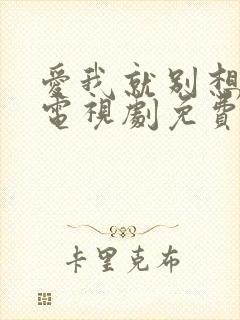 愛我就別想
電視劇免費
卡里克布